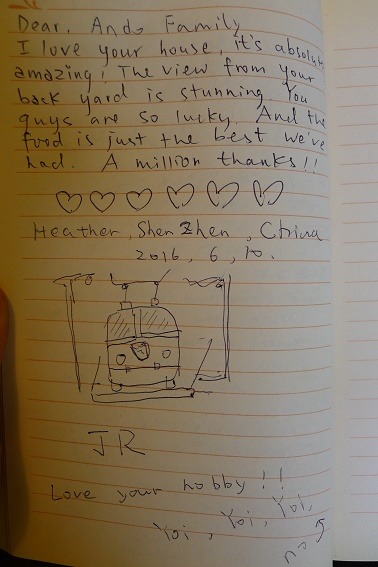 Dear, Ando Family
I love your house, it's absolutely
amazing! The view from your
back yard is stunning. You
guys are so lucky. And the
food is just the best we've
had. A million thanks!!
Heather, ShenZhen, China
2016, 6, 10.
JR
Love your hobby!!
Yoi, Yoi, Yoi,
no